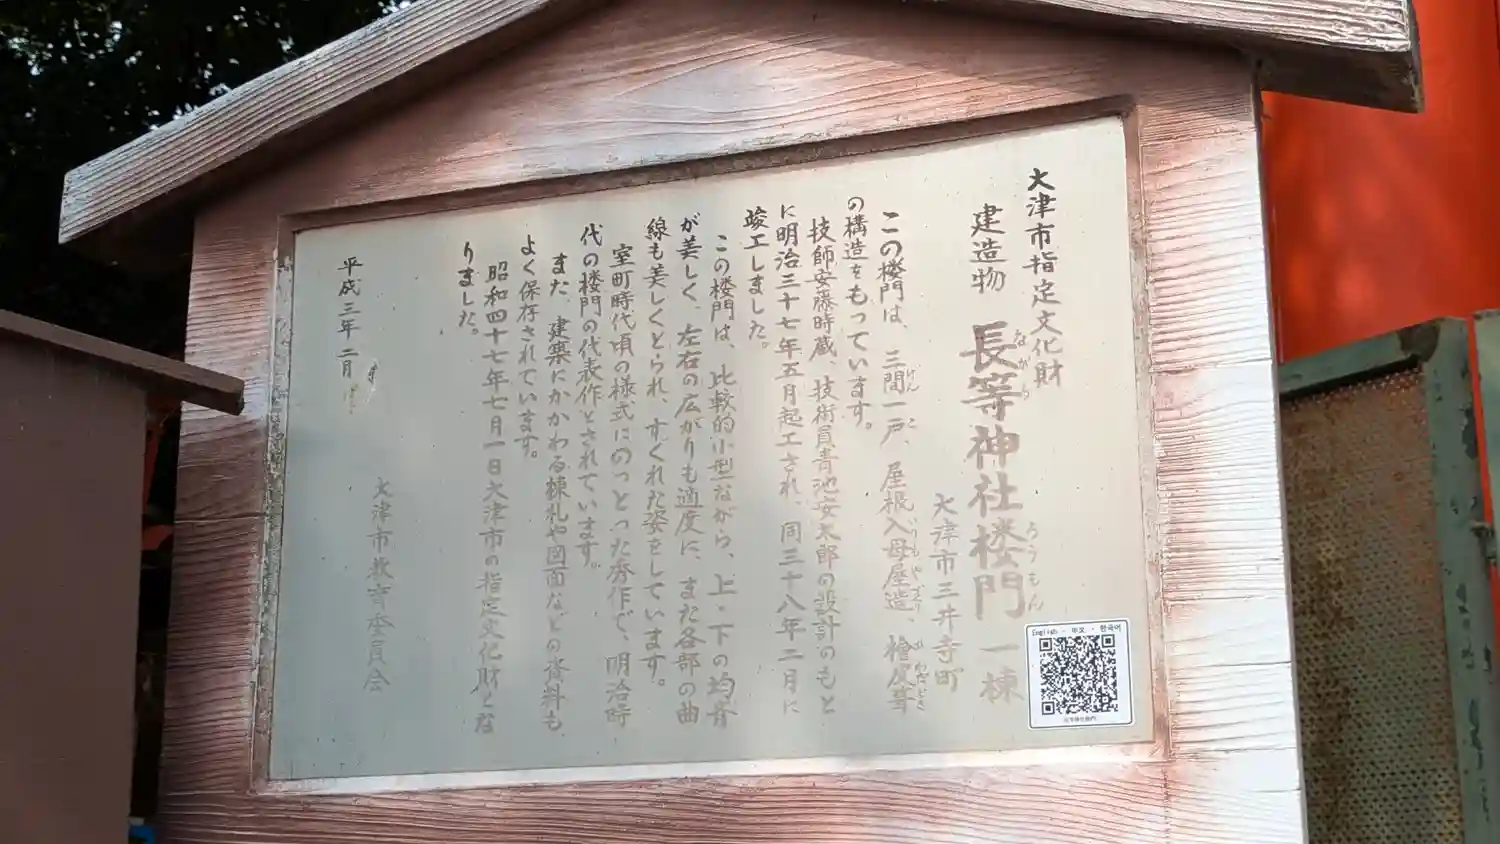 大津市指定文化財
建造物 長等神社楼門 一棟
ながら ろうもん
大津市三井寺町
この楼門は、三間一戸、屋根入母屋造、檜皮葺
けん こ いりもやづくり ひわだぶき
の構造をもっています。
技師安藤時蔵、技術員青池安太郎の設計のもと
に明治三十七年五月起工され、同三十八年二月に
竣工しました。
この楼門は、比較的小型ながら、上・下の均斉
が美しく、左右の広がりも適度に、また各部の曲
線も美しくとられ、すぐれた姿をしています。
室町時代頃の様式にのっとった秀作で、明治時
代の楼門の代表作とされています。
また、建築にかかわる棟札や図面などの資料も
よく保存されています。
昭和四十七年七月一日大津市の指定文化財とな
りました。
大津市教育委員会
平成三年二月
English ・ 中文 ・ 한국어
長等神社楼門